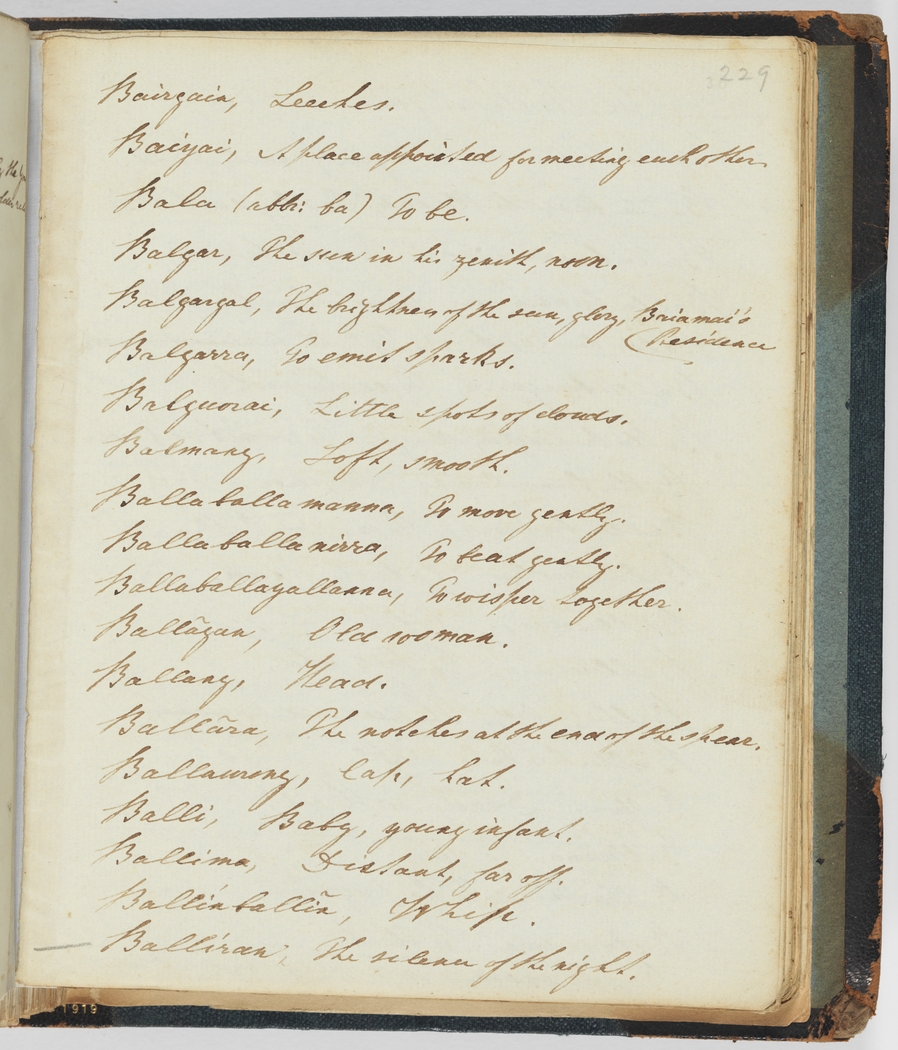 229
Bairgain, Leeches.
Baiyai, A place appointed for meeting each other
Bala (abbr: ba) To be.
Balgar, The sun in his zenith, noon.
Balgargal, The brightness of the sun, glory, Baiamai's
Residence
Balgarra, To emit sparks.
Balguorai, Little spots of clouds.
Balmang, Soft, smooth.
Ballaballamanna, To move gently.
Ballaballanirra, To beat gently.
Ballaballayallanna, To wisper together.
Ballāgun, Old woman.
Ballang, Head.
Ballāra, The notches at the end of the spear.
Ballaurong, Cap, hat.
Balli, Baby, young infant.
Ballima, Distant, far off.
Ballinballin, Whip.
Balliran, The silence of the night.
1919